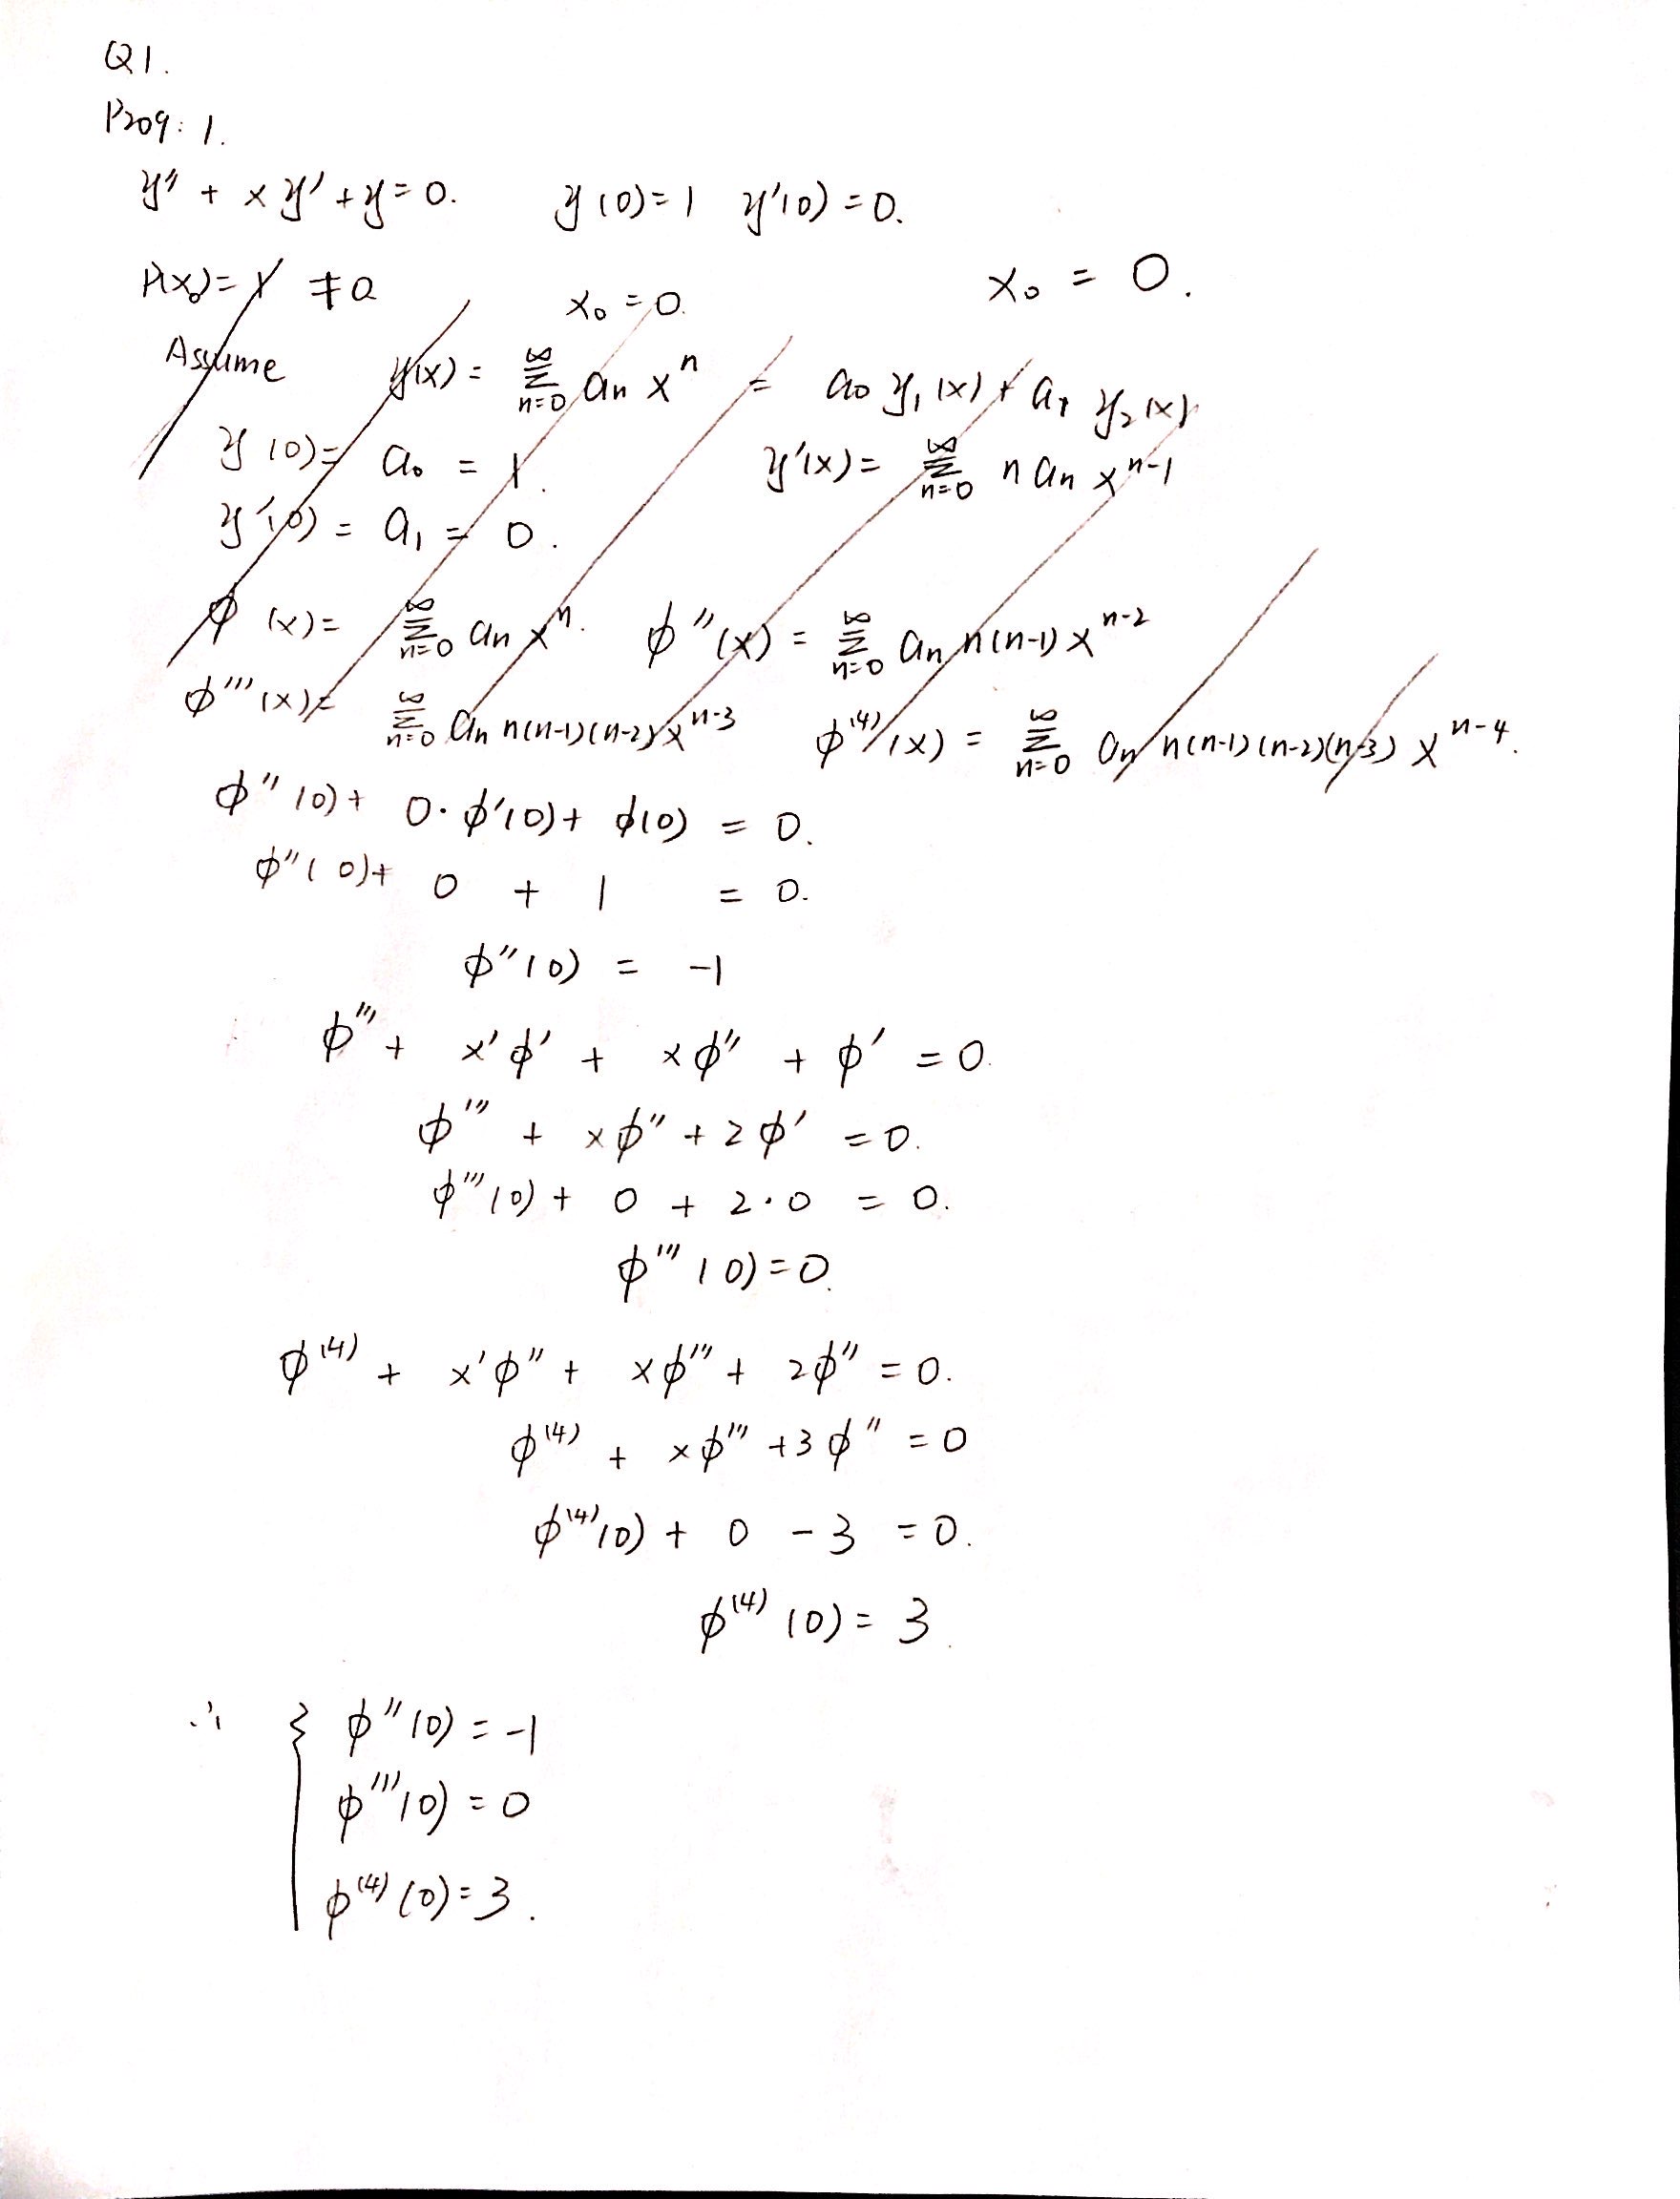 Q1.
P209: 1.
y'' + xy' + y = 0. y(0)=1 y'(0)=0.
P(x₀)=1 ≠0 x₀ =0. x₀ = 0.
Assume y(x) = ∑_{n=0}^{∞} aₙ xⁿ = a₀ y₁(x) + a₁ y₂(x)
y(0)= a₀ = 1. y'(x)= ∑_{n=0}^{∞} n aₙ x^{n-1}
y'(0) = a₁ = 0.
ϕ(x)= ∑_{n=0}^{∞} aₙ xⁿ. ϕ''(x) = ∑_{n=0}^{∞} aₙ n(n-1) x^{n-2}
ϕ'''(x)= ∑_{n=0}^{∞} aₙ n(n-1)(n-2) x^{n-3} ϕ^{(4)}(x) = ∑_{n=0}^{∞} aₙ n(n-1)(n-2)(n-3) x^{n-4}.
ϕ''(0)+ 0·ϕ'(0)+ ϕ(0) = 0.
ϕ''(0)+ 0 + 1 = 0.
ϕ''(0) = -1
ϕ''' + x'ϕ' + xϕ'' + ϕ' =0.
ϕ''' + xϕ'' + 2ϕ' =0.
ϕ'''(0) + 0 + 2·0 = 0.
ϕ'''(0)=0.
ϕ^{(4)} + x'ϕ'' + xϕ''' + 2ϕ'' =0.
ϕ^{(4)} + xϕ''' +3ϕ'' =0
ϕ^{(4)}(0) + 0 - 3 =0.
ϕ^{(4)}(0) = 3.
∴ { ϕ''(0) = -1
ϕ'''(0) = 0
ϕ^{(4)}(0)=3.